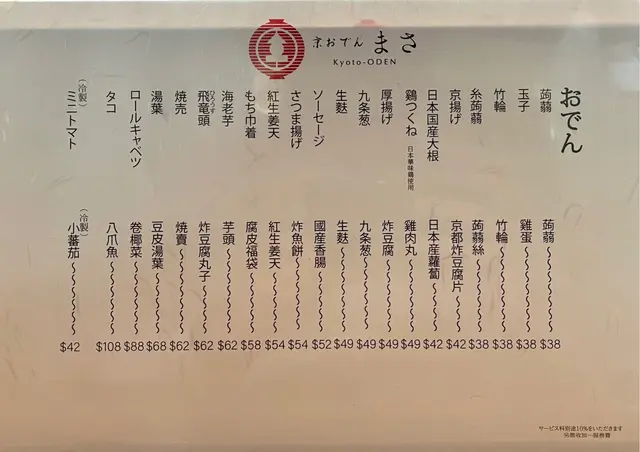 京おでん まさ
Kyoto-ODEN
おでん
蒟蒻 蒟蒻 $38
玉子 雞蛋 $38
竹輪 竹輪 $38
糸蒟蒻 蒟蒻絲 $38
京揚げ 京都炸豆腐片 $42
日本国産大根 日本産蘿蔔 $42
鶏つくね 日本華味鶏使用 雞肉丸 $49
厚揚げ 炸豆腐 $49
九条葱 九条葱 $49
生麩 生麩 $49
ソーセージ 國産香腸 $52
さつま揚げ 炸魚餅 $54
紅生姜天 紅生姜天 $54
もち巾着 腐皮福袋 $58
海老芋 芋頭 $62
飛竜頭 ひろうす 炸豆腐丸子 $62
焼売 燒賣 $62
湯葉 豆皮湯葉 $68
ロールキャベツ 卷椰菜 $88
タコ 八爪魚 $108
(冷製) ミニトマト (冷製) 小蕃茄 $42
サービス料別途10%をいただきます
另需收加一服務費